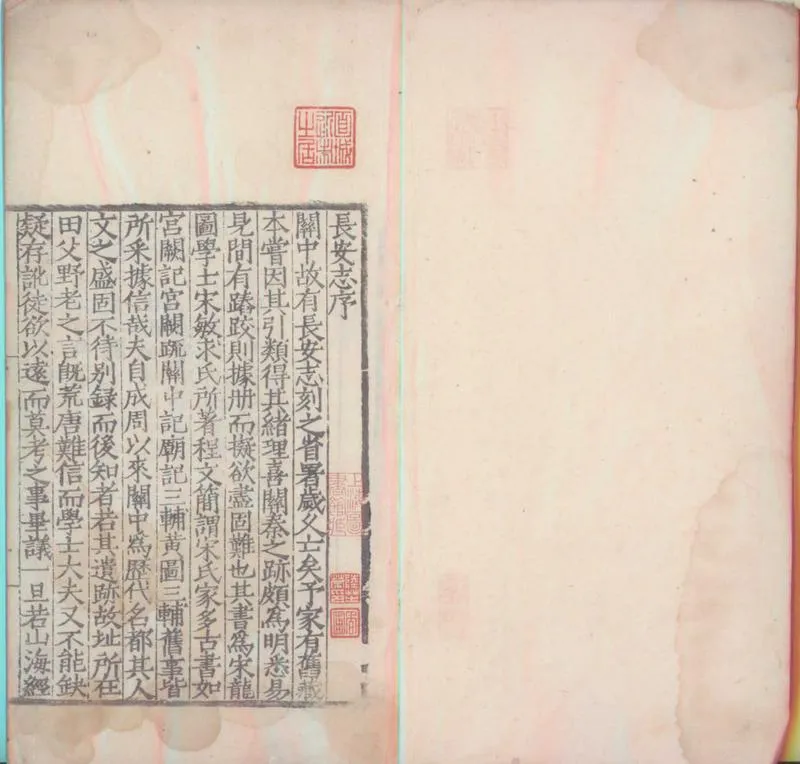 長安志序
關中故有長安志刻之省署歲久亡矣予家有舊藏
本嘗因其引類得其緒理喜關秦之跡頗爲明悉易
見間有踳跤則據册而擬欲盡固難也其書爲宋龍
圖學士宋敏求氏所著程文簡謂宋氏家多古書如
宮闕記宮闕疏關中記廟記三輔黃圖三輔舊事皆
所采據信哉夫自成周以來關中爲歷代名都其人
文之盛固不待别録而後知者若其遺跡故址所在
田父野老之言旣荒唐難信而學士大夫又不能缺
疑存訛徒欲以遠而莫考之事畢議一旦若山海經